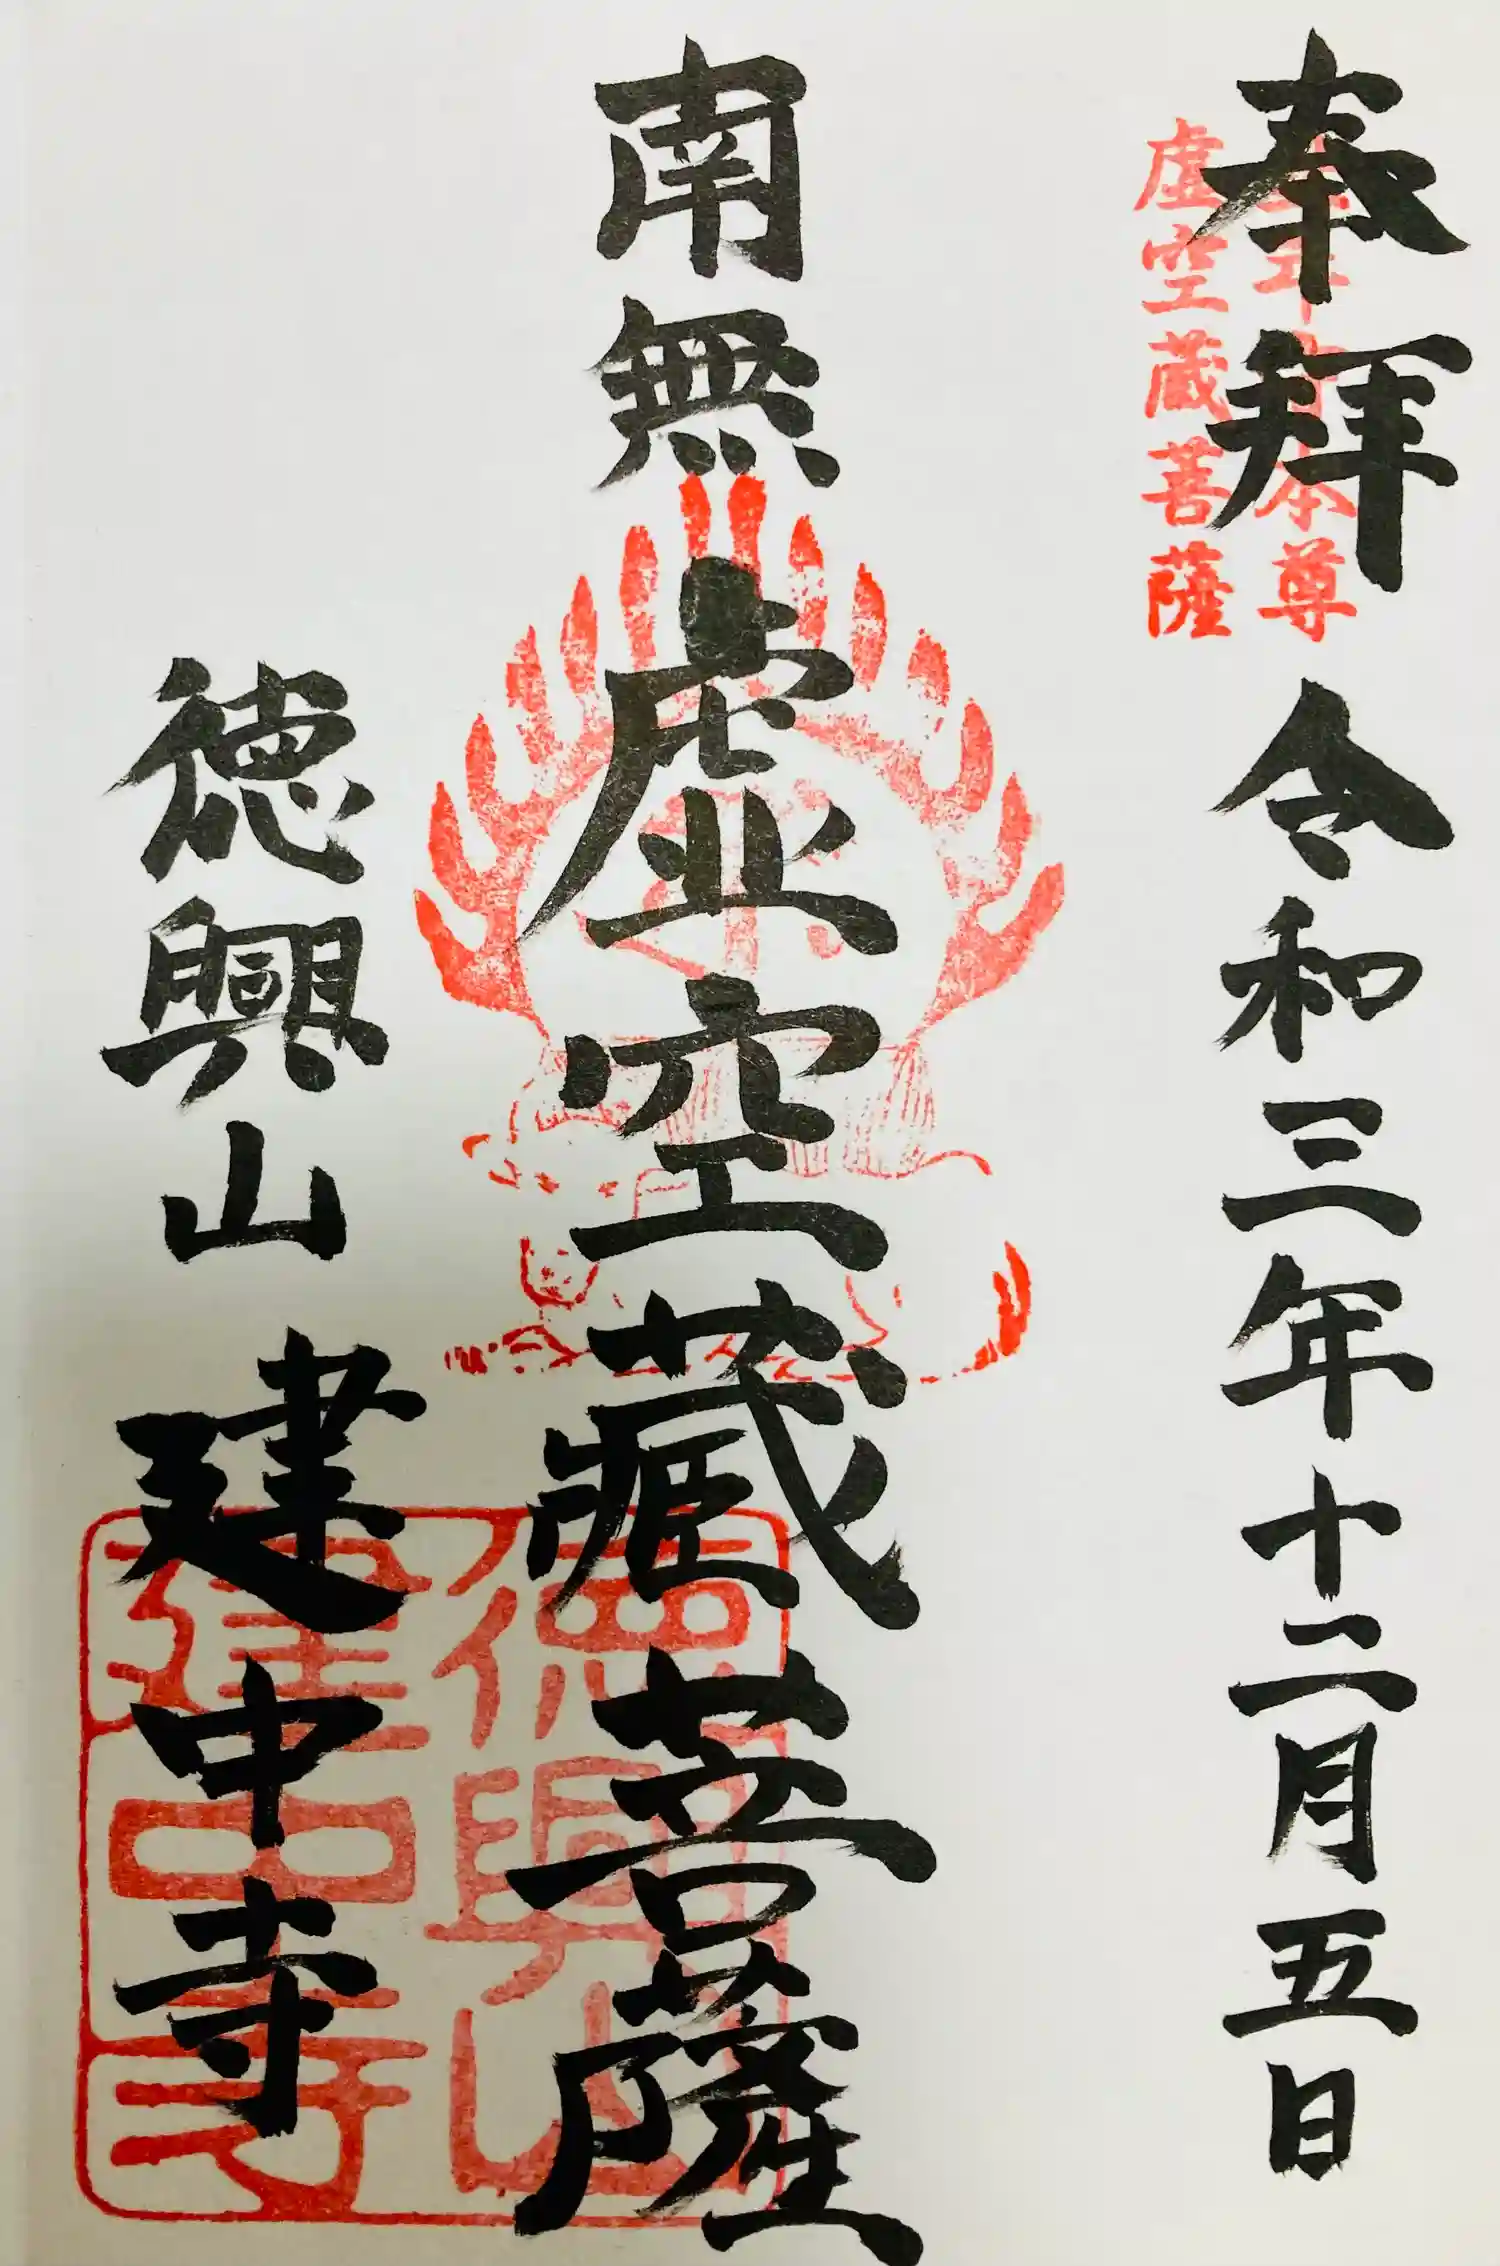 奉拝 令和三年十二月五日
本尊
虚空蔵菩薩
南無虚空藏菩薩
徳興山建中寺
徳興山
建中寺